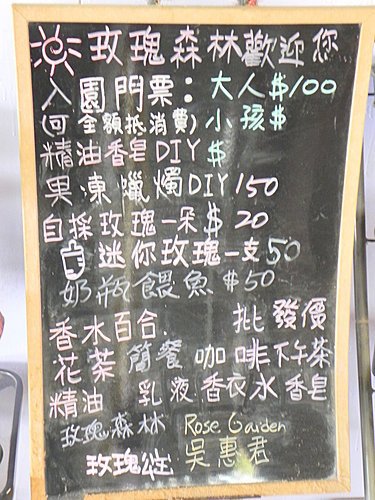 玫瑰森林歡迎您
入園門票:大人$100
(可全額抵消費)小孩$
精油香皂DIY $
果凍蠟燭DIY 150
自採玫瑰一朵$20
迷你玫瑰一支50
奶瓶餵魚 $50
香水百合. 批發價
花茶 簡餐 咖啡下午茶
精油 乳液 香衣水 香皂
玫瑰森林 Rose Garden
玫瑰公主 吳惠君